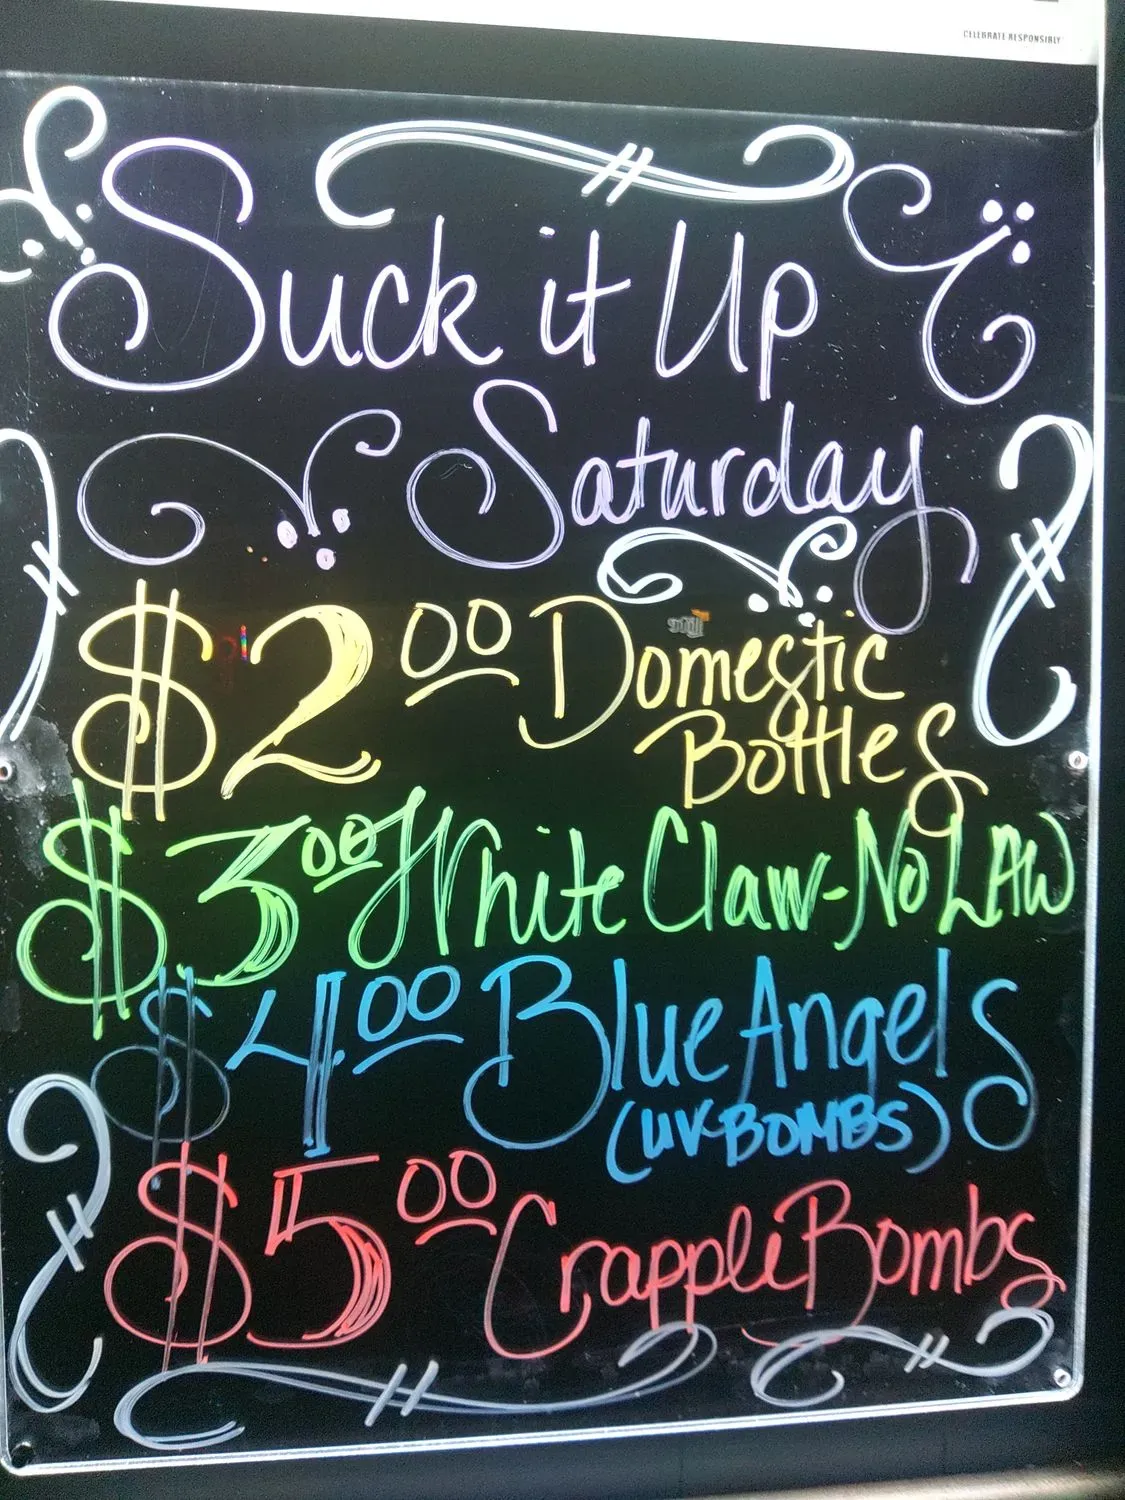 CELEBRATE RESPONSIBLY
Suck it Up
Saturday
$2.00 Domestic
Bottles
$3.00 White Claw-No LAW
$4.00 Blue Angels
(UV BOMBS)
$5.00 Crapple Bombs